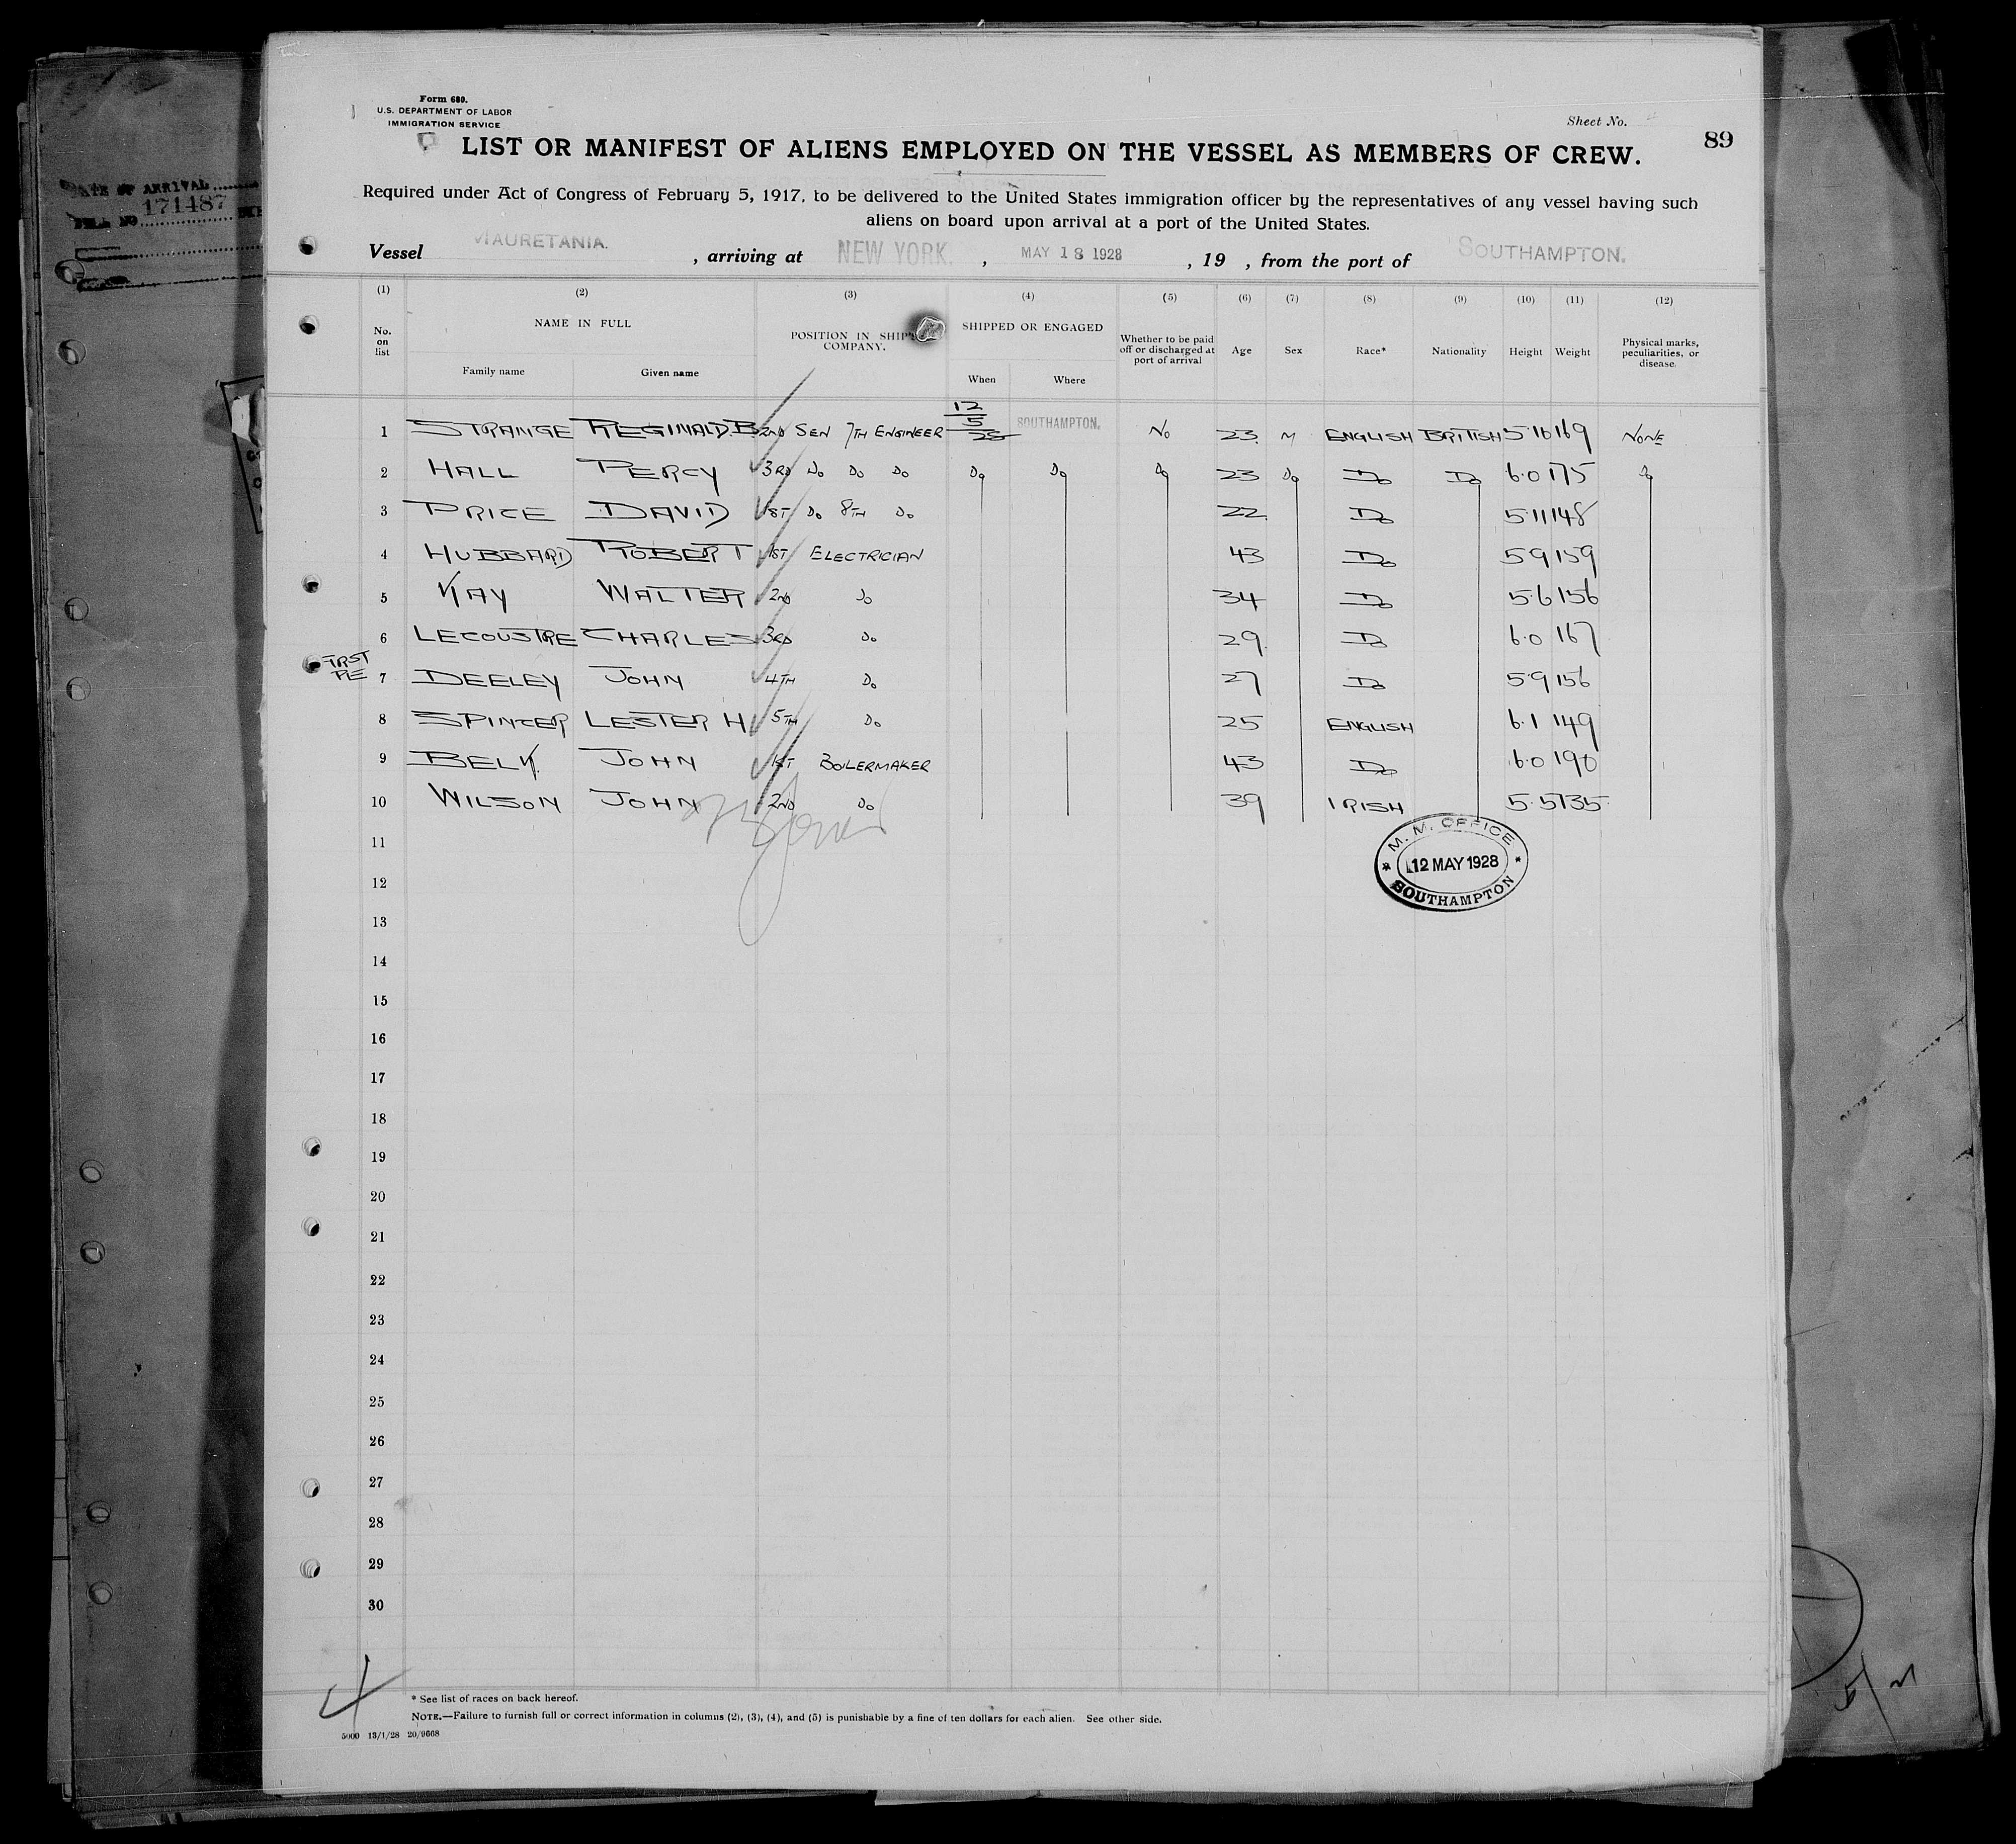 Form 680.
U.S. DEPARTMENT OF LABOR
IMMIGRATION SERVICE
Sheet No.
89
LIST OR MANIFEST OF ALIENS EMPLOYED ON THE VESSEL AS MEMBERS OF CREW.
Required under Act of Congress of February 5, 1917, to be delivered to the United States immigration officer by the representatives of any vessel having such
aliens on board upon arrival at a port of the United States.
DATE OF ARRIVAL
171487
Vessel MAURETANIA. , arriving at NEW YORK. , MAY 18 1928 , 19 , from the port of SOUTHAMPTON.
(1) (2) (3) (4) (5) (6) (7) (8) (9) (10) (11) (12)
No. on list NAME IN FULL Family name Given name POSITION IN SHIP'S COMPANY. SHIPPED OR ENGAGED When Where Whether to be paid off or discharged at port of arrival Age Sex Race* Nationality Height Weight Physical marks, peculiarities, or disease.
1 STRANGE REGINALD.B 2ND SEN 7TH ENGINEER 12/5/28 SOUTHAMPTON. No 23 M ENGLISH BRITISH 5·10 169 NONE
2 HALL PERCY 3RD Do Do Do Do Do Do 23 Do Do Do 6·0 175 Do
3 PRICE DAVID 1ST Do 8TH Do 22 Do 5·11 148
4 HUBBARD ROBERT 1ST ELECTRICIAN 43 Do 5 9 159
5 KAY WALTER 2ND Do 34 Do 5·6 156
6 LECOUSTRE CHARLES 3RD Do 29 Do 6·0 167
FIRST
7 DEELEY JOHN 4TH Do 27 Do 5 9 156
8 SPINCER LESTER H 5TH Do 25 ENGLISH 6·1 149
9 BELK. JOHN 1ST BOILERMAKER 43 Do 6·0 190
10 WILSON JOHN 2ND Do 39 IRISH 5·5 135
M. M. OFFICE
12 MAY 1928
SOUTHAMPTON
11
12
13
14
15
16
17
18
19
20
21
22
23
24
25
26
27
28
29
30
* See list of races on back hereof.
NOTE.—Failure to furnish full or correct information in columns (2), (3), (4), and (5) is punishable by a fine of ten dollars for each alien. See other side.
5000 13/1/28 20/9668